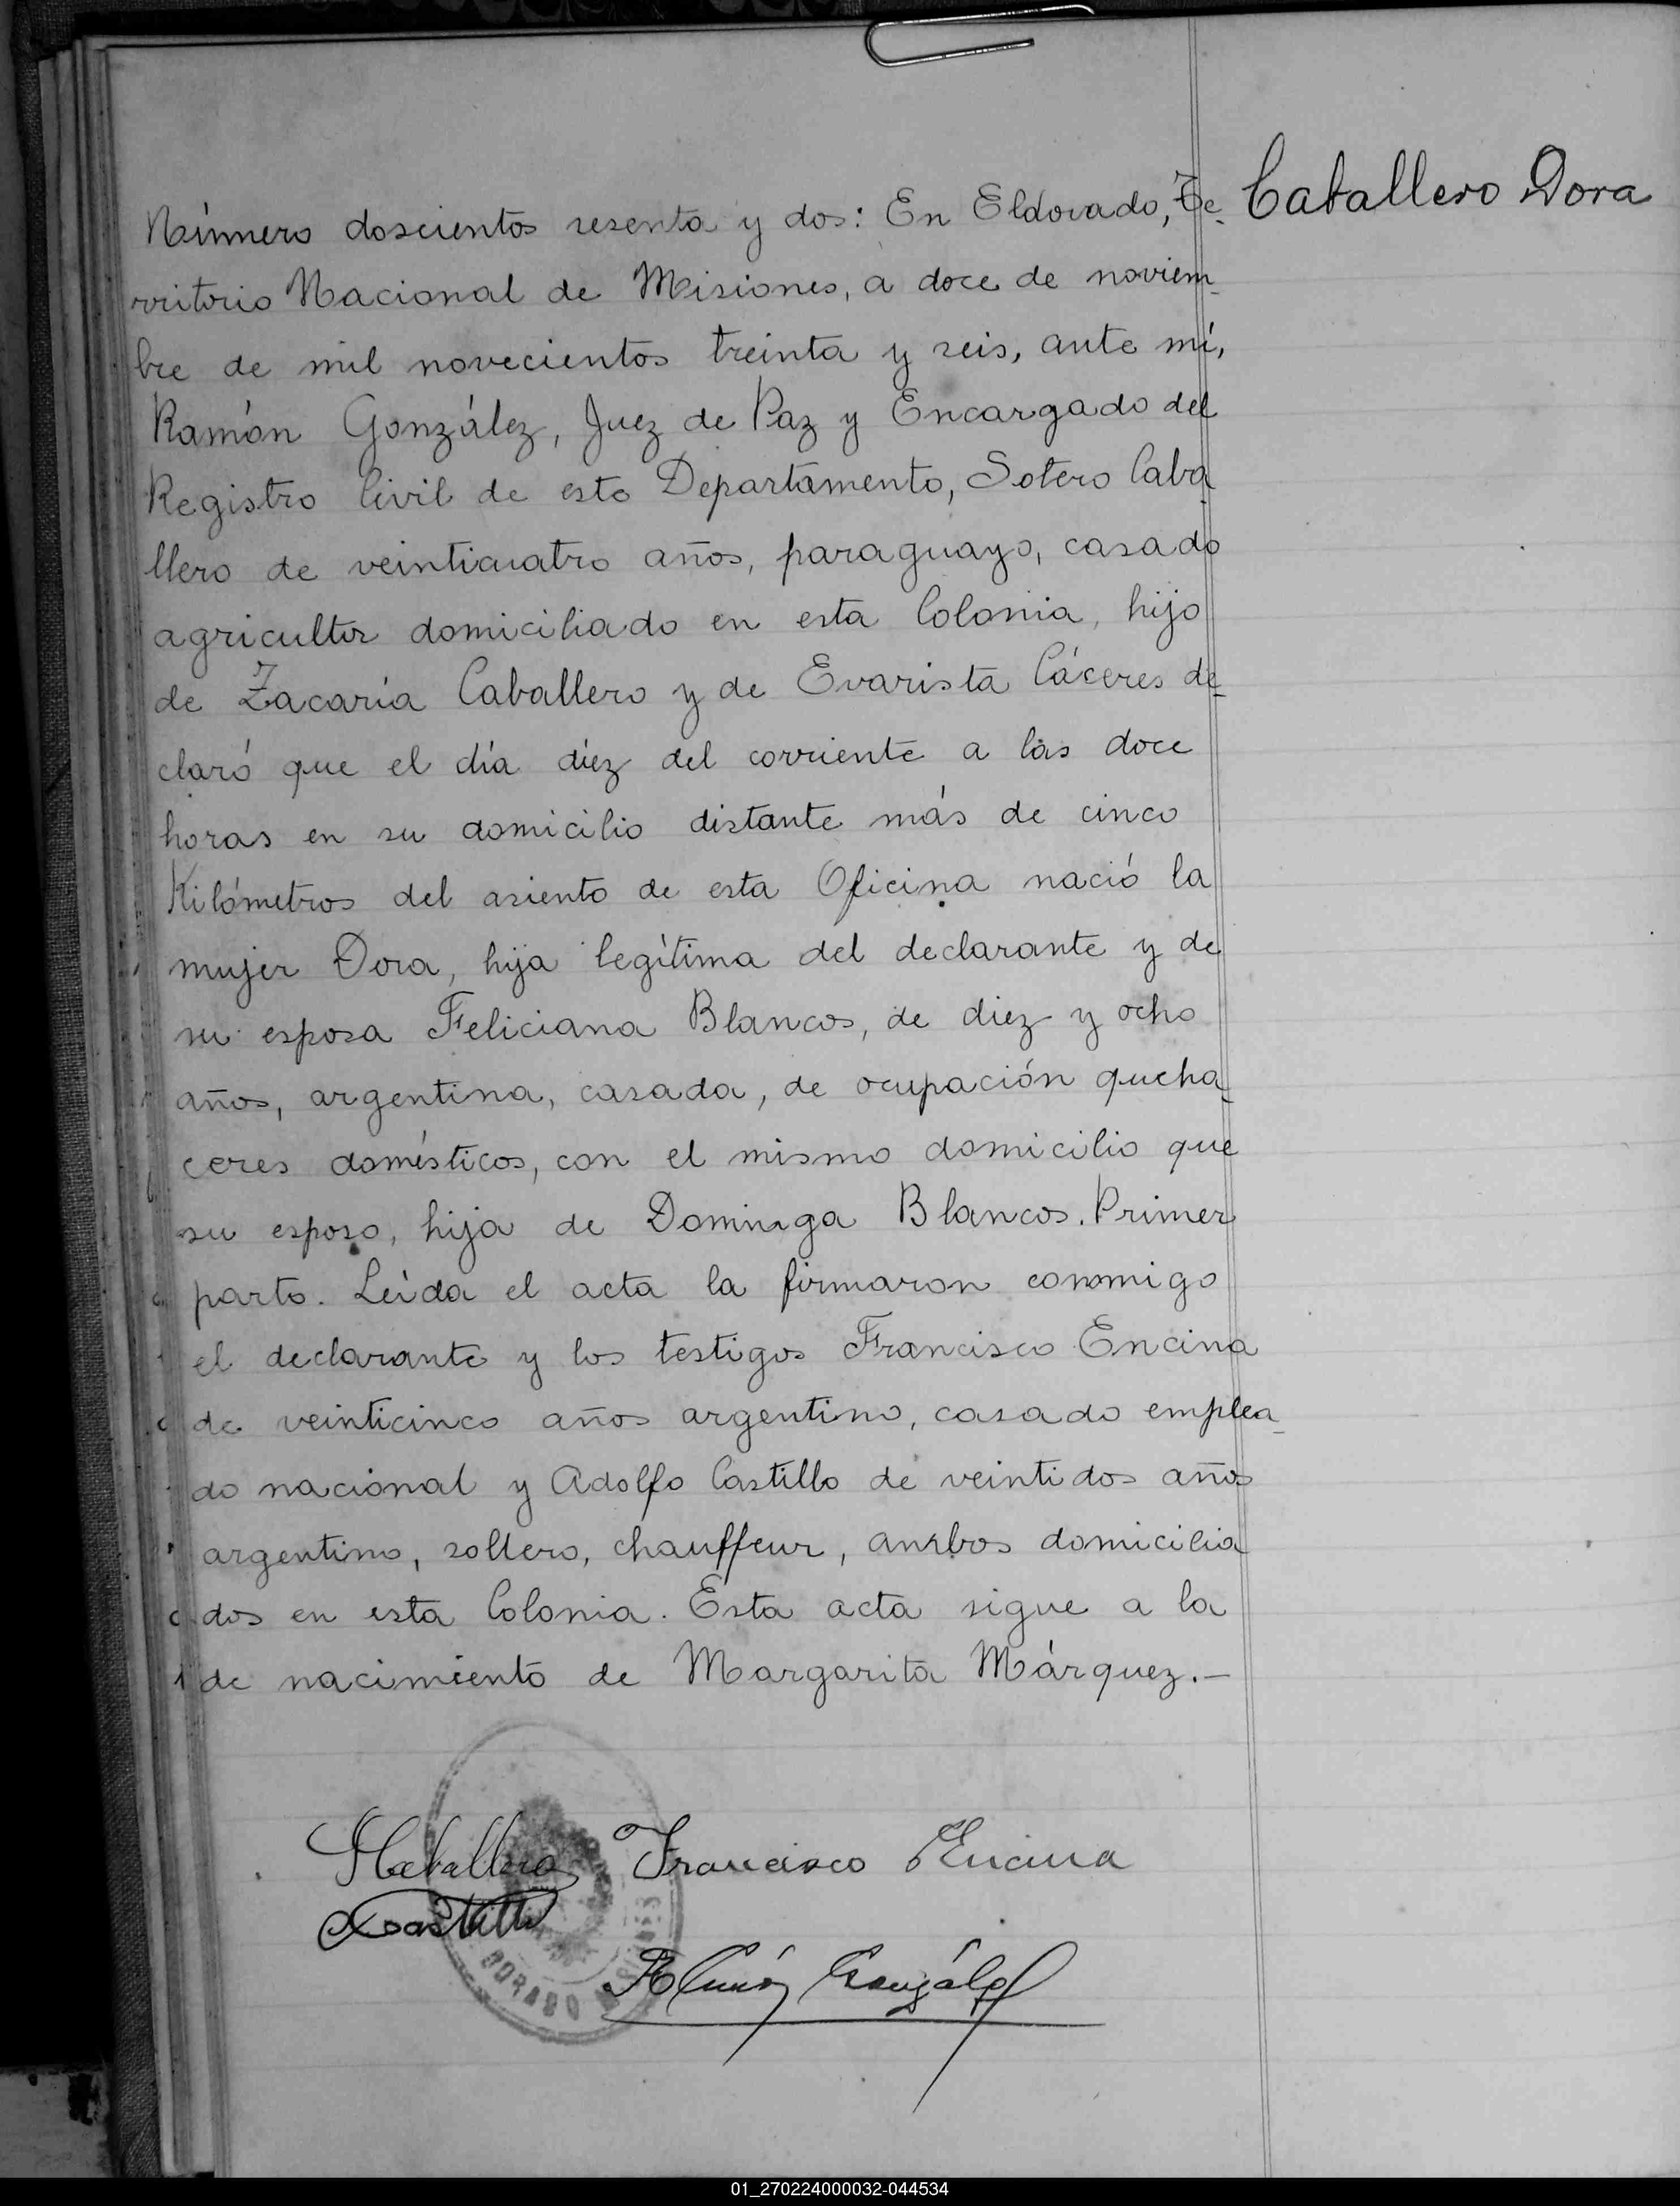 Caballero Dora
Número doscientos sesenta y dos: En Eldorado, Te-
rritorio Nacional de Misiones, a doce de noviem-
bre de mil novecientos treinta y seis, ante mí,
Ramón González, Juez de Paz y Encargado del
Registro Civil de este Departamento, Sotero Caba
llero de veinticuatro años, paraguayo, casado
agricultor domiciliado en esta Colonia, hijo
de Zacaría Caballero y de Evarista Cáceres de-
claró que el día diez del corriente a las doce
horas en su domicilio distante más de cinco
Kilómetros del asiento de esta Oficina nació la
mujer Dora, hija legítima del declarante y de
su esposa Feliciana Blancos, de diez y ocho
años, argentina, casada, de ocupación queha-
ceres domésticos, con el mismo domicilio que
su esposo, hija de Dominga Blancos. Primer
parto. Leída el acta la firmaron conmigo
el declarante y los testigos Francisco Encina
de veinticinco años argentino, casado emplea-
do nacional y Adolfo Castillo de veintidos años
argentino, soltero, chauffeur, ambos domicilia
dos en esta Colonia. Esta acta sigue a la
de nacimiento de Margarita Márquez.-
SCaballero Francisco Encina
ACastillo
Ramón González
DORADO
01_270224000032-044534